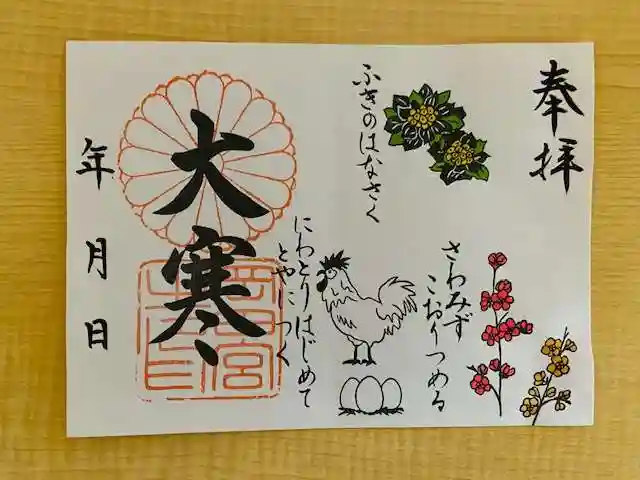 奉拝
ふきのはなさく
さわみず
こおりつめる
にわとりはじめて
とやにつく
大寒
年 月 日